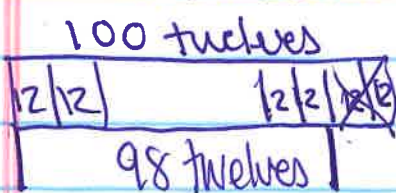 100 twelves
12|12| 12|12|12|12
98 twelves